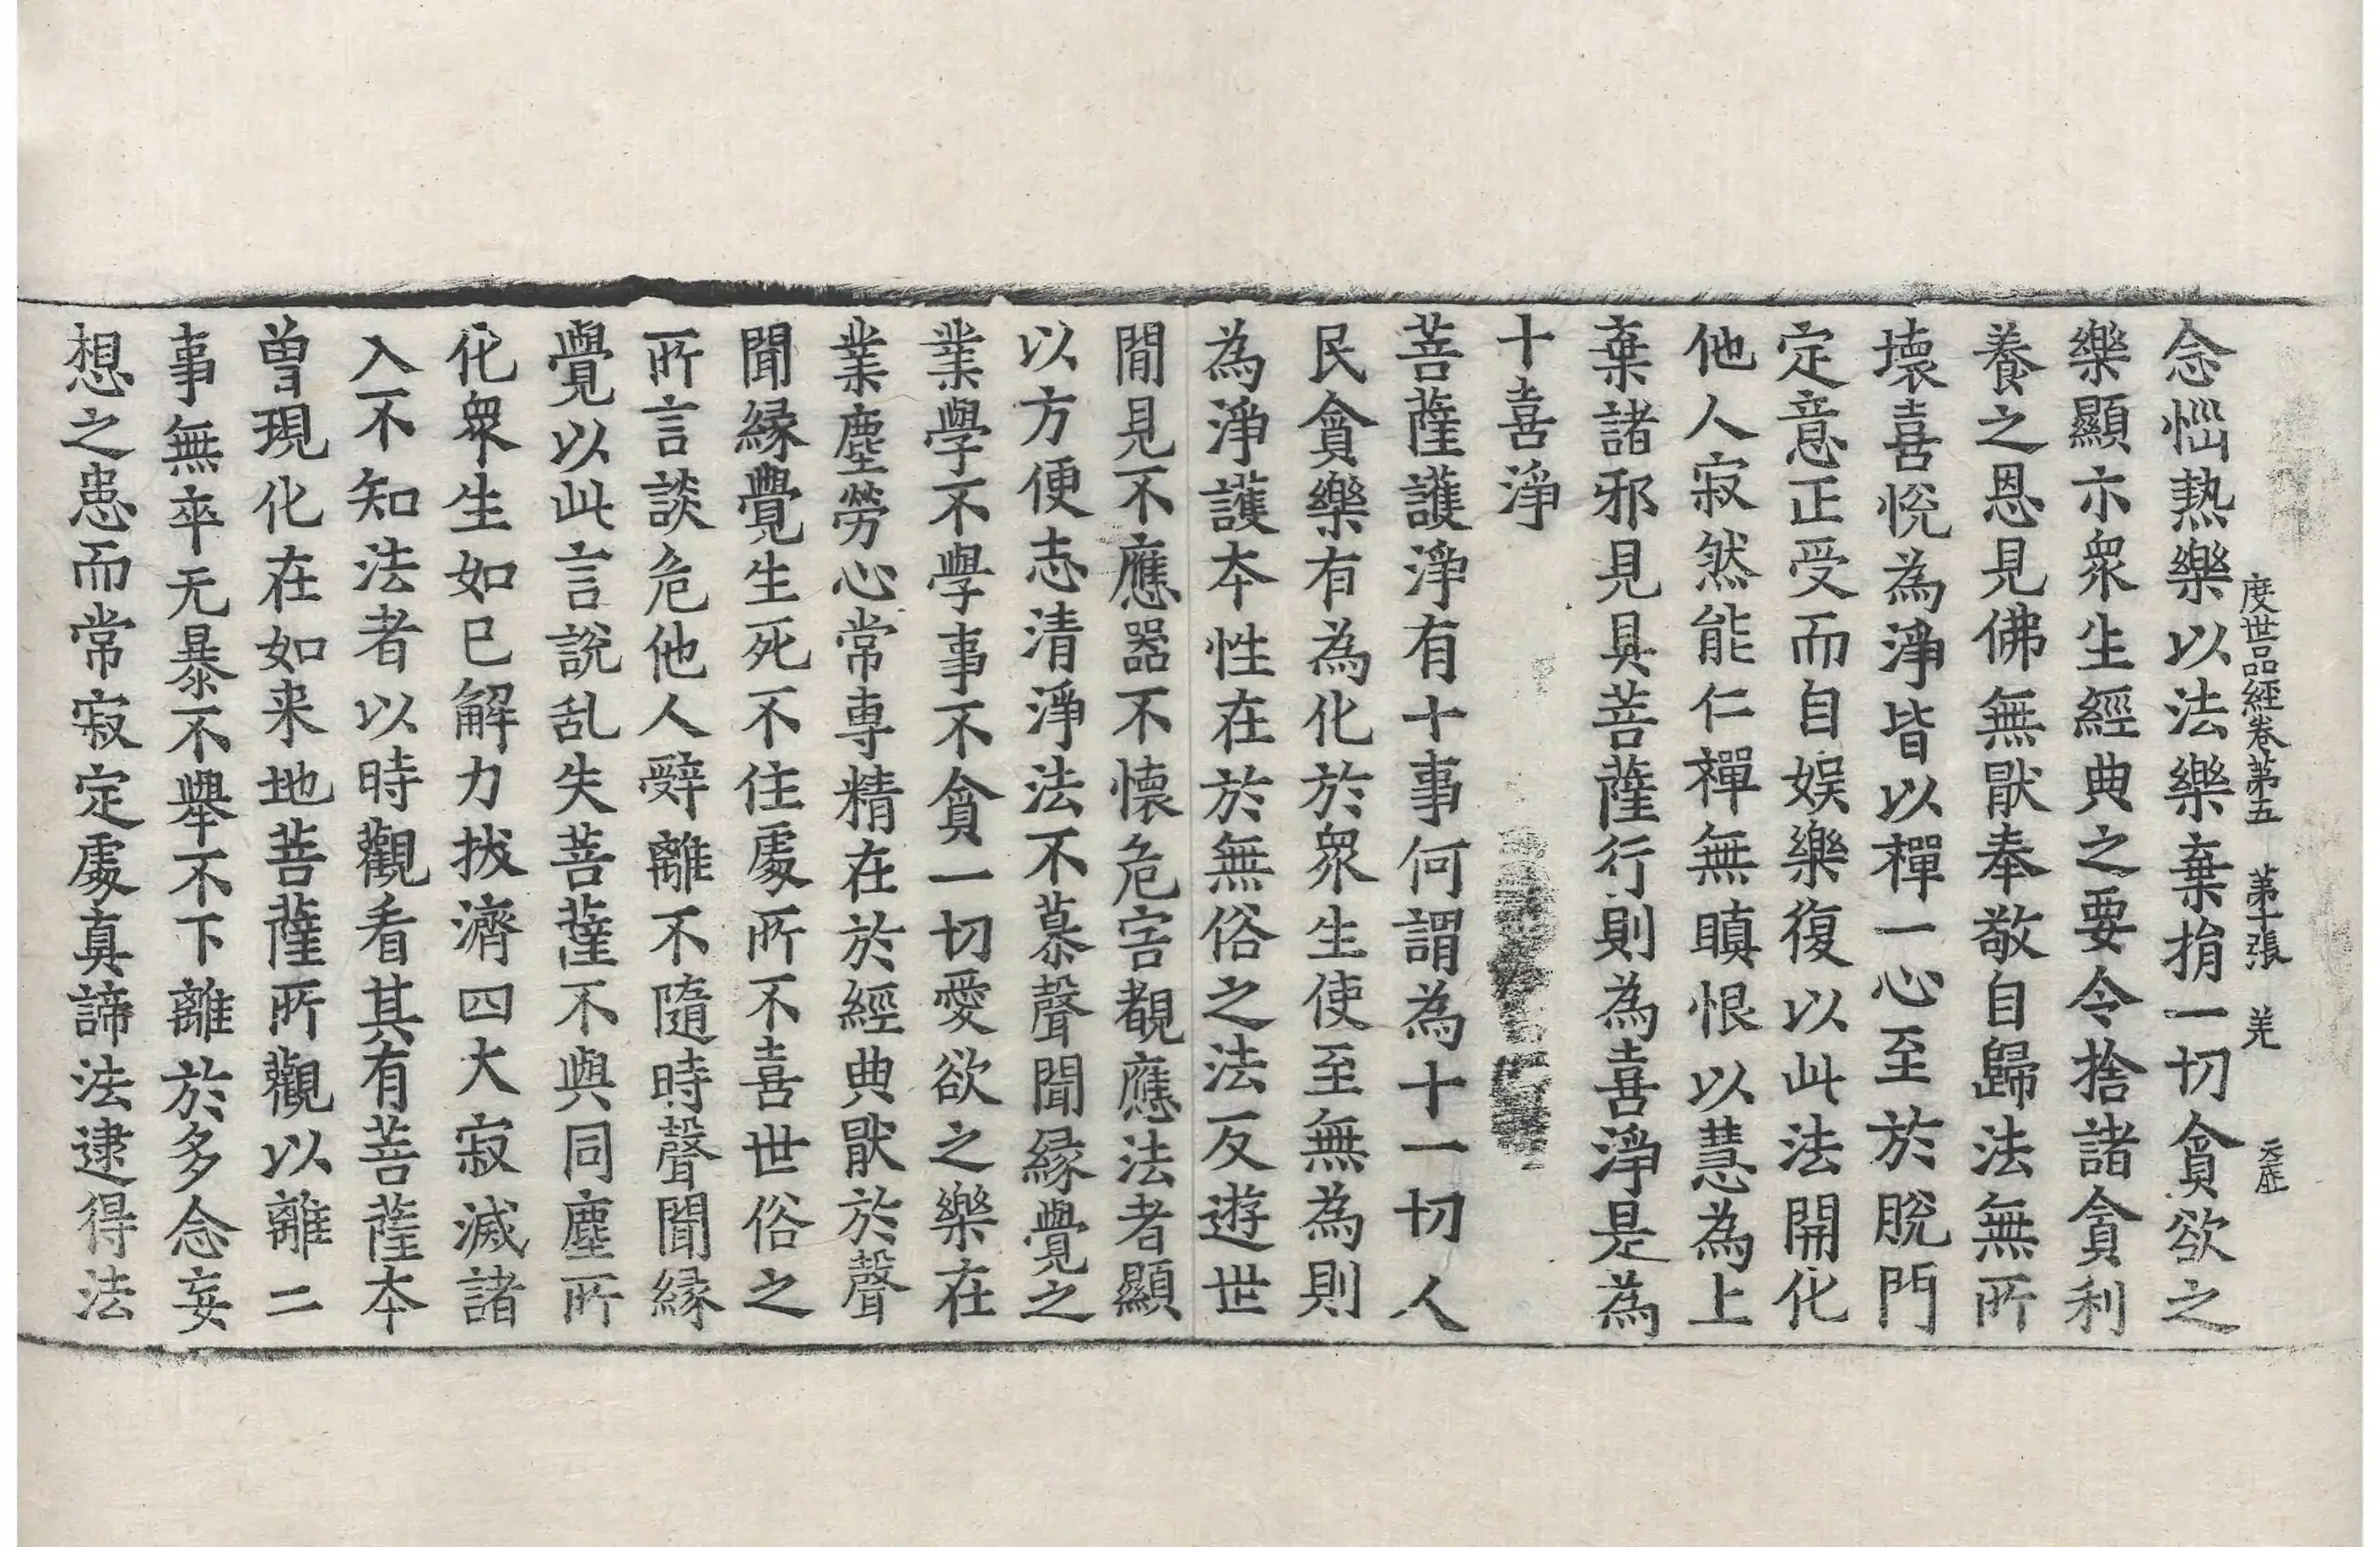 度世品經卷第五 第十張 羌 天莊
念惱熱樂以法樂棄捐一切貪欲之
樂顯示衆生經典之要令捨諸貪利
養之恩見佛無猒奉敬自歸法無所
壞喜悅為淨皆以禪一心至於脫門
定意正受而自娛樂復以此法開化
他人寂然能仁禪無瞋恨以慧為上
棄諸邪見具菩薩行則為喜淨是為
十喜淨
菩薩護淨有十事何謂為十一切人
民貪樂有為化於衆生使至無為則
為淨護本性在於無俗之法反遊世
閒見不應器不懷危害覩應法者顯
以方便志清淨法不慕聲聞緣覺之
業學不學事不貪一切愛欲之樂在
業塵勞心常專精在於經典猒於聲
聞緣覺生死不住處所不喜世俗之
所言談危他人辤離不隨時聲聞緣
覺以此言說乱失菩薩不與同塵所
化衆生如已解力拔濟四大寂滅諸
入不知法者以時觀看其有菩薩本
曽現化在如来地菩薩所觀以離二
事無卒无暴不舉不下離於多念妄
想之患而常寂定處真諦法逮得法